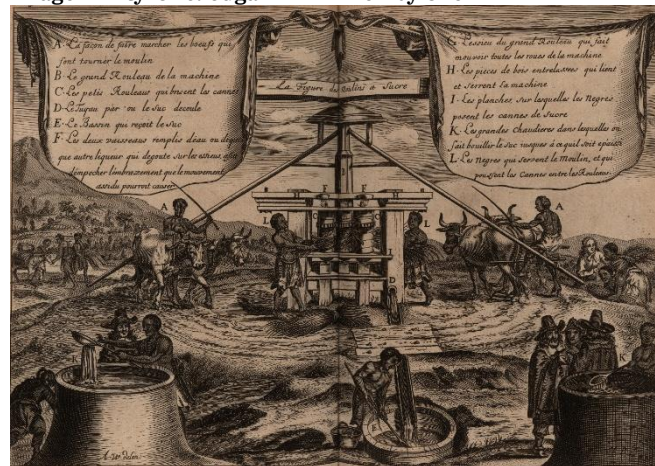 A. La façon de faire marcher les bœufs qui
font tournier le moulin
B. Le grand Rouleau de la machine
C. Les petis Rouleaux qui brisent les cannes
D. Le Tuyau par ou le suc decoule
E. Le Bassin qui reçoit le suc
F. Les deux vaisseaux remplis d'eau ou de quel
que autre liqueur qui degoute sur les essieux, afin
d'empecher l'embrasement que le mouvement
assidu pourroit causer
La Figure des Moulins a Sucre
G. L'essieu du grand Rouleau qui fait
mouvoir toutes les roues de la machine
H. Les pieces de bois entrelassées qui lient
et serrent la machine
I. Les planches sur lesquelles les Negres
posent les cannes de sucre
K. Les grandes chaudieres dans lesquelles on
fait bouillir le suc jusques à ce qu'il soit epaissi
L. Les Negres qui serrent le Moulin, et qui
poussent les Cannes entre les Rouleaux
A
A
F
F
L
D
K
E